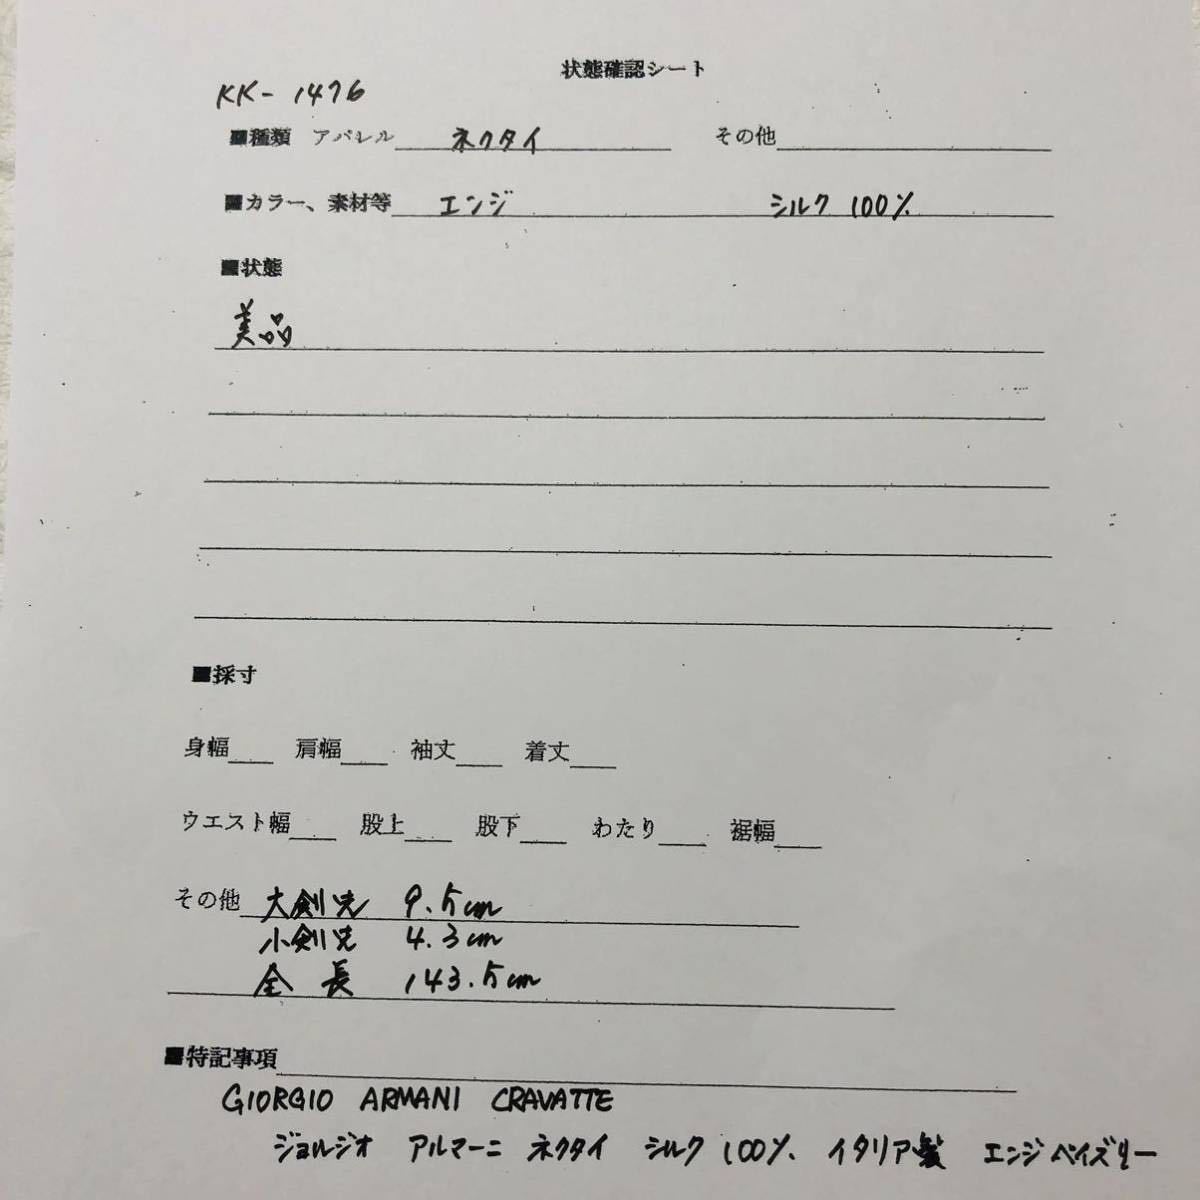 状態確認シート
KK-1476
■種類 アパレル ネクタイ その他
■カラー、素材等 エンジ シルク 100%
■状態
美品
■採寸
身幅 肩幅 袖丈 着丈
ウエスト幅 股上 股下 わたり 裾幅
その他 大剣先 9.5cm
小剣先 4.3cm
全長 143.5cm
■特記事項
GIORGIO ARMANI CRAVATTE
ジョルジオ アルマーニ ネクタイ シルク 100% イタリア製 エンジペイズリー